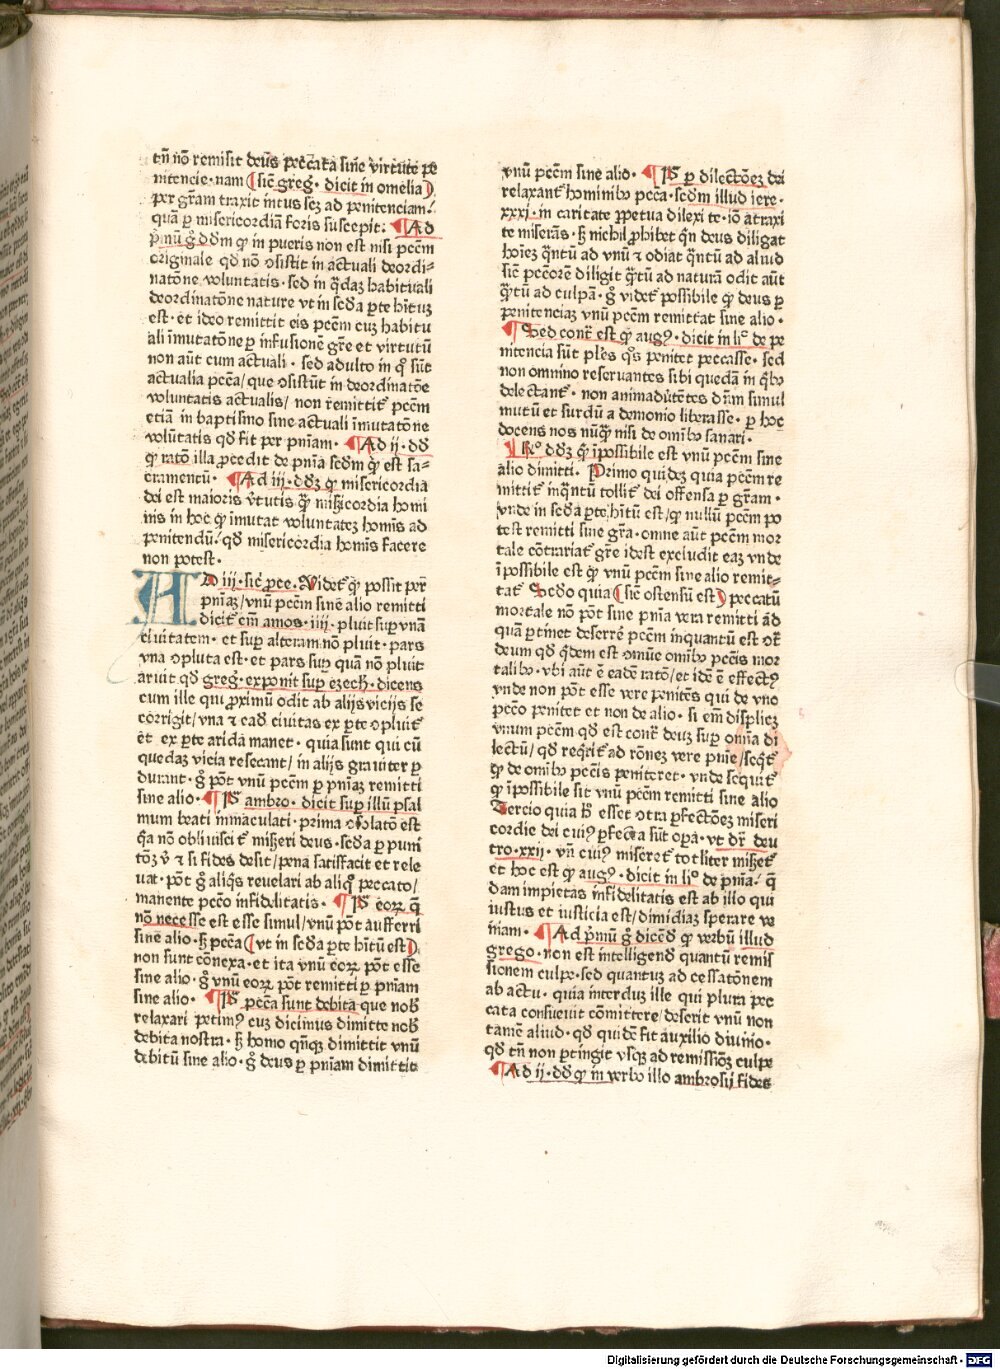 tñ nō remisit deus peccata sine virtute pe
nitencie· nam (sic̄ greg̕· dicit in omelia)
per grām traxit intus sez ad penitenciam/
quā p misericordiā foris suscepit: ¶ Ad
p̄mū g̊ dd̄m ꝙ in pueris non est nisi pccm̄
originale qd̄ nō ↄsistit in actuali deordi⸗
natōne voluntatis· sed in q̄daz habituali
deordinatōne nature vt in scd̄a p̱te hītuz
est· et ideo remittit eis pccm̄ cuz habitu
ali īmutatōne p infusionē gr̄e et virtutū
non aūt cum actuali· sed adulto in qͦ sūt
actualia pccā/ que ↄsistūt in deordinatōe
voluntatis actualis/ non remittit̄ pccm̄
etiā in baptismo sine actuali īmutatōne
volūtatis qd̄ fit per pn̄iam· ¶ Ad ij· dd̄
ꝙ ratō illa ꝓcedit de pn̄ia scd̄m ꝙ est sa⸗
cramentū· ¶ Ad iij· dd̄z ꝙ misericordia
dei est maioris v̄tutis q̄ɜ misericordia homi
nis in hoc ꝙ īmutat voluntatez homīs ad
penitendū/ qd̄ misericordia homīs facere
non potest·
AD iiij· sic̄ ꝓce· Videt̄ ꝙ possit per
pn̄iaz/ vnū pccm̄ sine alio remitti
dicit em̄ amos· iiij· pluit sup̱ vnā
ciuitatem· et sup̱ alteram nō pluit· pars
vna ↄpluta est· et pars sup̱ quā nō pluit
aruit qd̄ greg· exponit sup̱ ezech̄· dicens
cum ille qui ꝓximū odit ab alijs vicijs se
corrigit/ vna ⁊ eadē ciuitas ex p̱te ↄpluit̄
et ex p̱te arida manet· quia sunt qui cū
quedaz vicia resecant/ in alijs grauiter p̱
durant· g̊ pōt vnū pccm̄ p pn̄iaz remitti
sine alio· ¶ Pͣ ambro· dicit sup̱ illū psal
mum beati immaculati· prima ↄsolatō est
q̄a nō obliuiscit̄ miseri deus· scd̄a p puni
tōz v̄ ⁊ si fides desit/ pena satisfacit et rele
uat· pōt g̊ aliq̄s reuelari ab aliqͦ peccato/
manente pcc̄o infidelitatis· ¶ Pͣ eorꝝ q̄
nō necesse est esse simul/ vnū pōt aufferri
sine alio· sɜ pccā (vt in scd̄a p̱te hītū est)
non sunt cōnexa· et ita vnū eorꝝ pōt esse
sine alio· g̊ vnū eorꝝ pōt remitti p pn̄iam
sine alio· ¶ Pͣ pccā sunt debita que nob̄
relaxari petimꝰ cuz dicimus dimitte nob̄
debita nostra· sɜ homo qn̄qɜ dimittit vnū
debitū sine alio· g̊ deus p pn̄iam dimittit
vnū pccm̄ sine alio· ¶ Pͣ p dilectōez dei
relaxant̄ hominibꝰ pccā· scd̄m illud iere·
xxxj· in caritate ꝑpetua dilexi te· iō atraxi
te miserās· sɜ nichil ꝓhibet qn̄ deus diligat
hoīez q̄ntū ad vnū ⁊ odiat q̄ntū ad aliud
sic̄ peccorē diligit q̄tū ad naturā odit aūt
q̄tū ad culpā· g̊ videt̄ possibile ꝙ deus p
penitenciaz vnū pccm̄ remittat sine alio·
¶ Sed cont̄ est ꝙ augꝰ· dicit in liͦ de pe
nitencia sūt ples̄ qͦs penitet peccasse· sed
non omnino reseruantes sibi quedā in q̄bꝰ
delectant̄· non animaduētētes dn̄m simul
mutū et surdū a demonio liberasse· p hoc
docens nos nūq̄ nisi de omībꝰ sanari·
¶ Rͦ· dd̄z ꝙ īpossibile est vnū pccm̄ sine
alio dimitti· Primo quidez quia pccm̄ re
mittit̄ inq̄ntū tollit̄ dei offensa p grām·
vnde in scd̄a p̱te hītū est/ ꝙ nullū pccm̄ po
test remitti sine grā· omne aūt pccm̄ mor
tale cōtrariat̄ gr̄e idest excludit eaz vnde
īpossibile est ꝙ vnū pccm̄ sine alio remit⸗
tat̄ Scdo quia (sic̄ ostensū est) peccatū
mortale nō pōt sine pn̄ia vera remitti ad
quā p̱tinet deserrē pccm̄ inquantū est ↄt̄
deum qd̄ q̄dem est omūe omībꝰ pccīs mor
talibꝰ· vbi aūt ē eadē ratō/ et idē ē effectꝰ
vnde non pōt esse vere penitēs qui de vno
pcc̄o penitet et non de alio· si em̄ displicz
vnum pccm̄ qd̄ est cont̄ deuz sup̱ omīa di
lectū/ qd̄ reqͥrit̄ ad rōnez vere pn̄ie/ seqͥt̄
ꝙ de omībꝰ pccīs peniteret· vnde sequit̄
ꝙ īpossibile sit vnū pccm̄ remitti sine alio
Tercio quia hͦ esset ↄtra ꝑfectōez miseri
cordie dei cuiꝰ ꝑfecta sūt oꝑa· vt dr̄ deu
tro· xxij· vn̄ cuiꝰ miseret̄ totlīter miset̄
et hoc est ꝙ augꝰ· dicit in liͦ de pn̄ia/ q̄
dam impietas infidelitatis est ab illo qui
iustus et iusticia est/ dimidiaz sperare ve
niam· ¶ Ad p̄mū g̊ dicēd̄ ꝙ verbū illud
grego· non est intelligend̄ quantū remis
sionem culpe· sed quantuz ad cessatōnem
ab actu· quia interduz ille qui plura pec
cata consueuit cōmittere/ deserit vnū non
tamē aliud· qd̄ quidē fit auxilio diuino·
qd̄ tñ non p̱tingit vsqɜ ad remissiōz culpe
¶ Ad ij· dd̄ ꝙ in verbo illo ambrosij fides
Digitalisierung gefördert durch die Deutsche Forschungsgemeinschaft - DFG